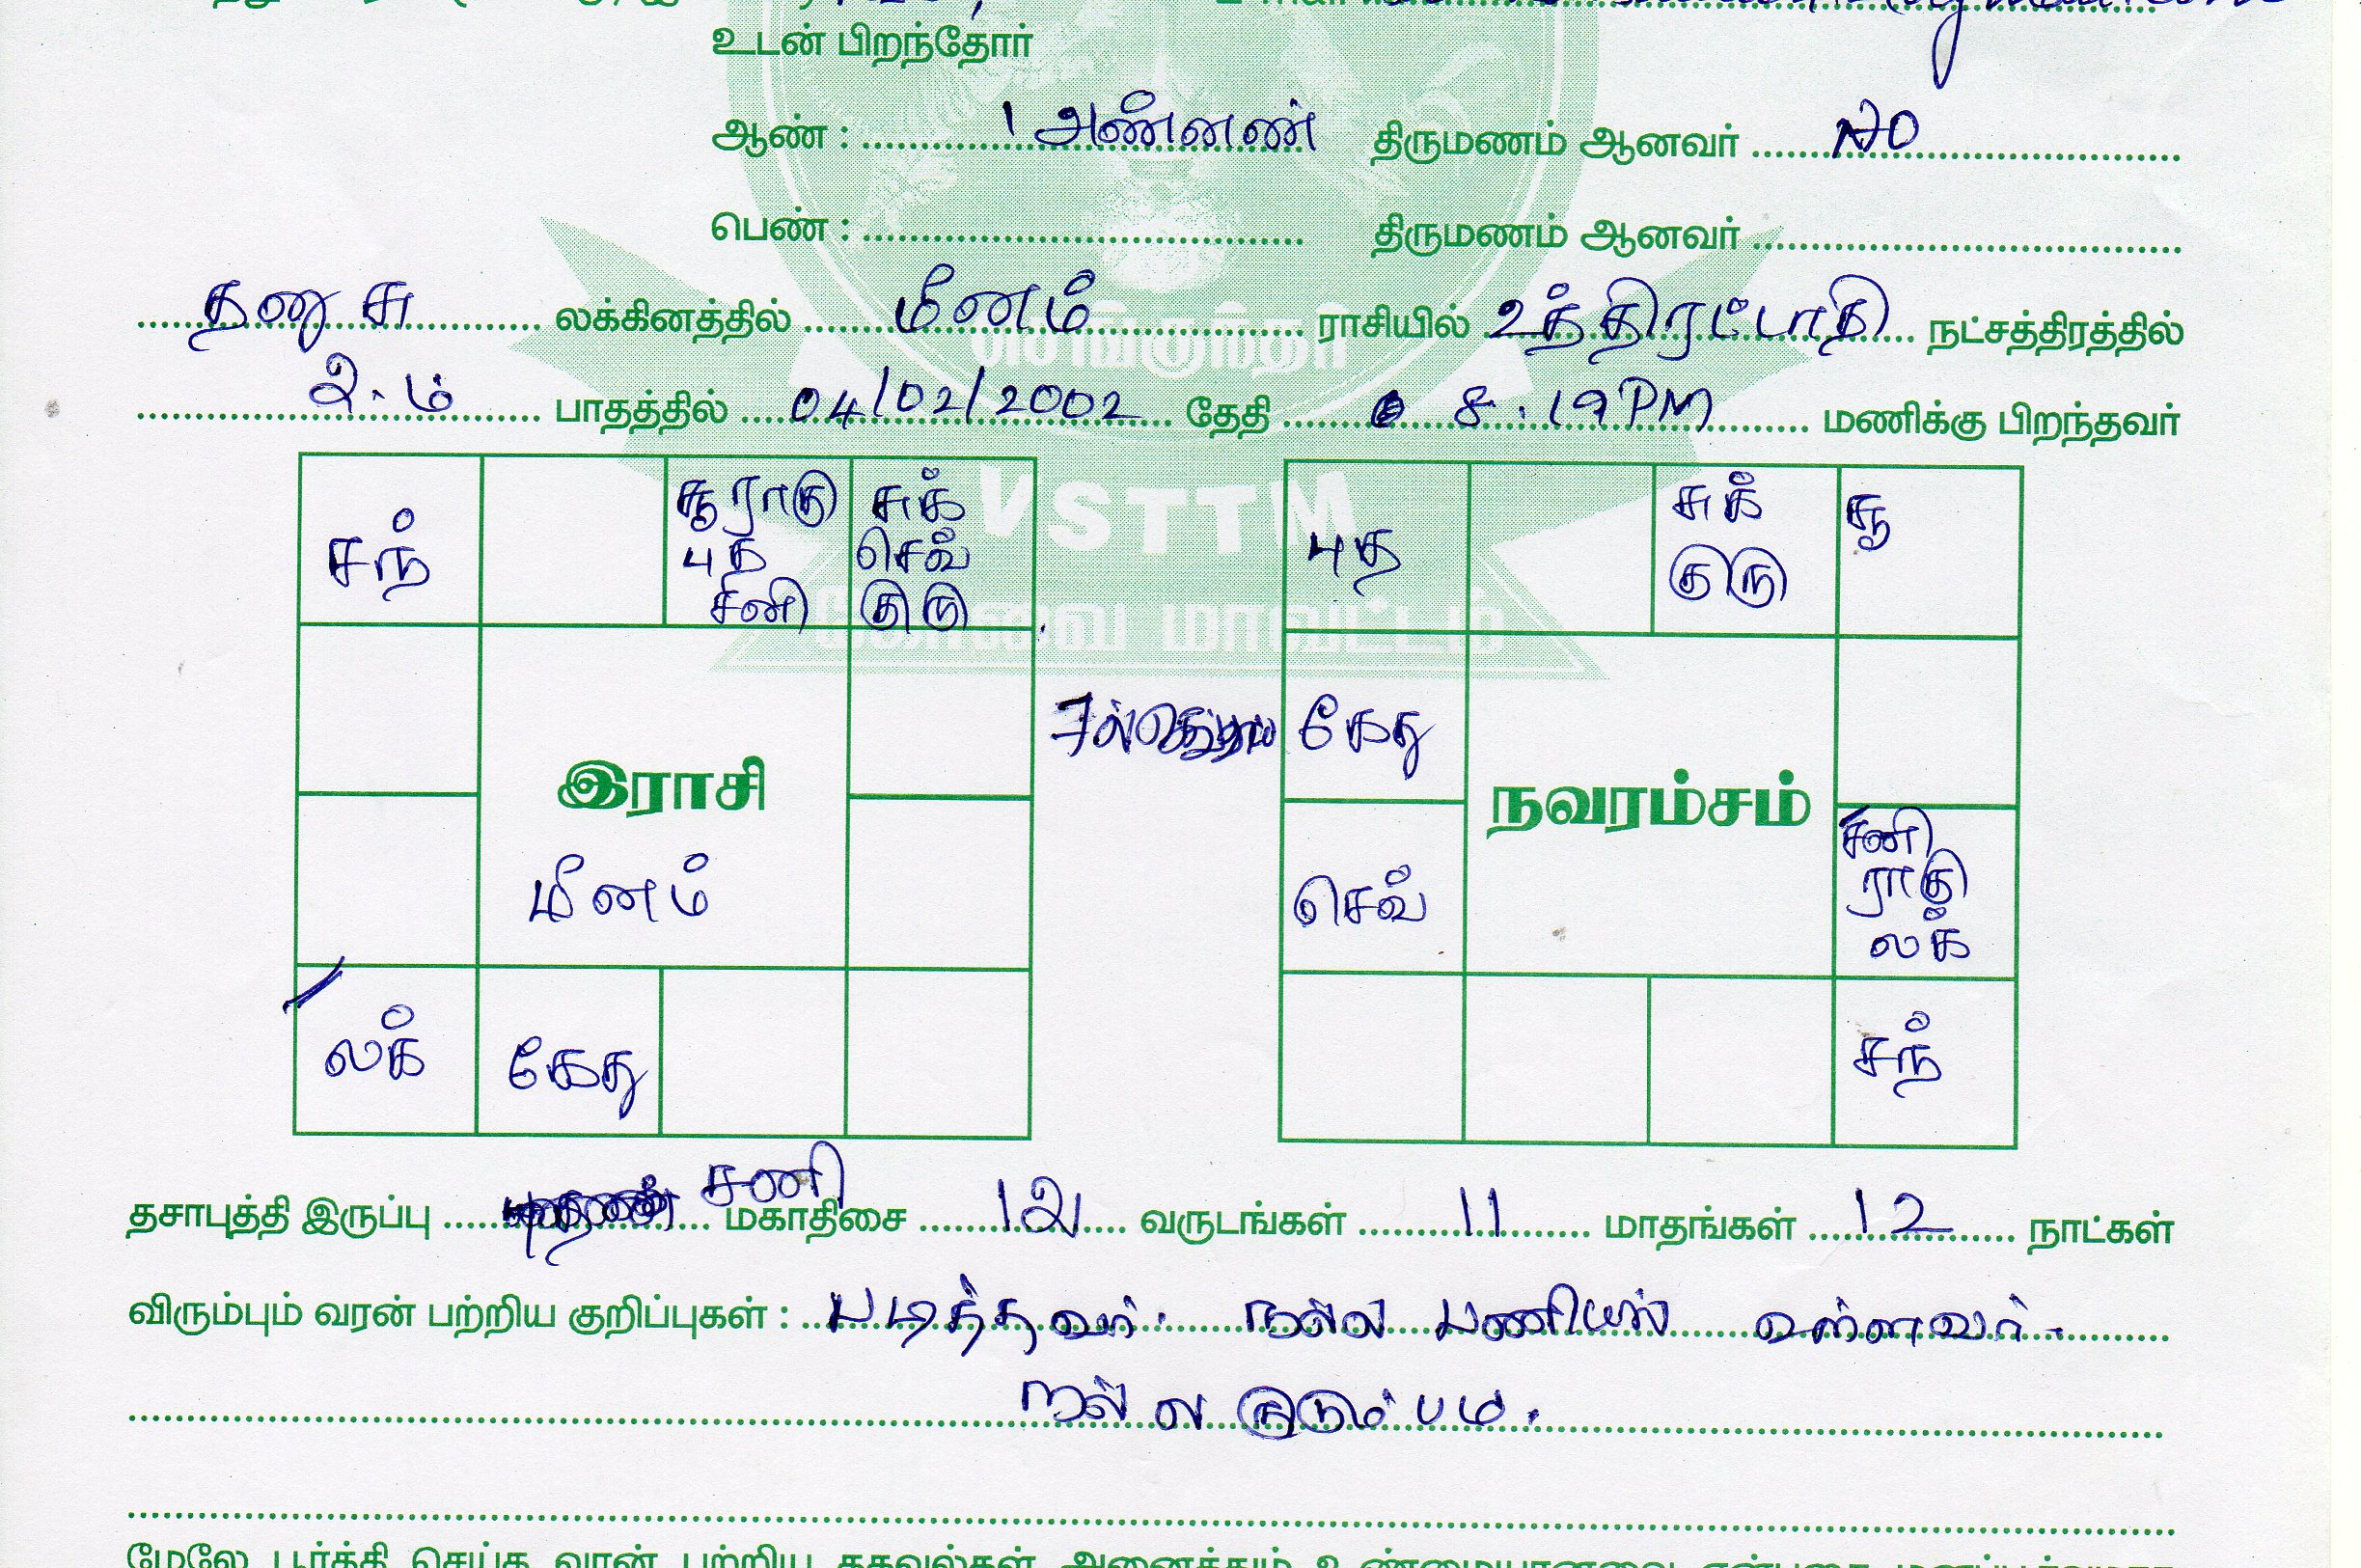 உடன் பிறந்தோர்
ஆண் : 1 அண்ணன் திருமணம் ஆனவர் NO
பெண் : திருமணம் ஆனவர்
தனுசு லக்கினத்தில் மீனம் ராசியில் உத்திரட்டாதி நட்சத்திரத்தில்
2.ம் பாதத்தில் 04/02/2002 தேதி 8.19PM மணிக்கு பிறந்தவர்
சந் சூ ராகு சுக் புத சுக் சூ
புத செவ் குரு
சனி குரு
VSTTM
கோவை மாவட்டம்
கேது
இராசி நவரம்சம் சனி
மீனம் செவ் ராகு
லக்
லக் கேது சந்
தசாபுத்தி இருப்பு சனி மகாதிசை 12 வருடங்கள் 11 மாதங்கள் 12 நாட்கள்
விரும்பும் வரன் பற்றிய குறிப்புகள் : படித்தவர். நல்ல பணியில் உள்ளவர்.
நல்ல குடும்பம்.
மேலே பூர்த்தி செய்த வரன் பற்றிய தகவல்கள் அனைத்தும் உண்மையானவை என்பதை